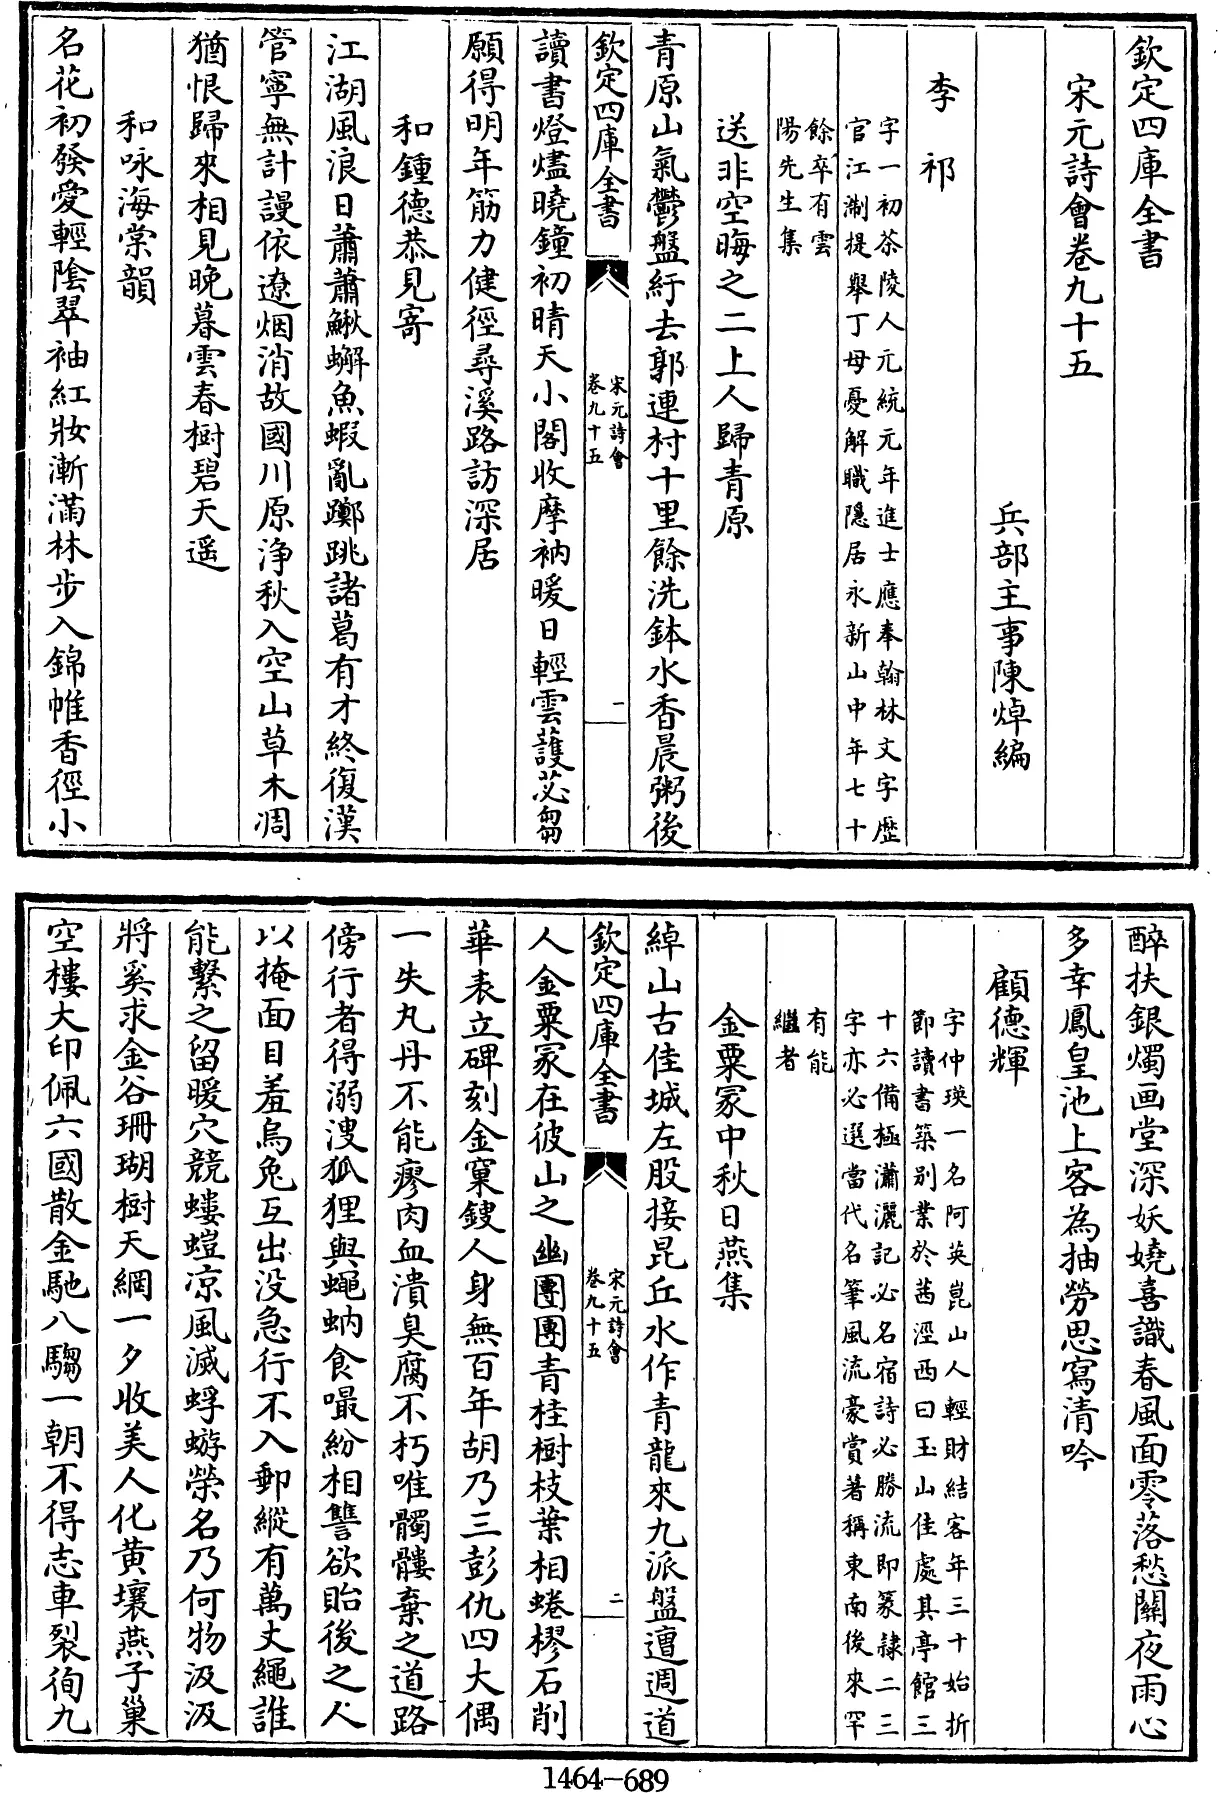 欽定四庫全書
宋元詩會卷九十五
兵部主事陳焯編
李祁
字一初茶陵人元統元年進士應奉翰林文字歷
官江淛提舉丁母憂解職隱居永新山中年七十
餘卒有雲
陽先生集
送非空晦之二上人歸青原
青原山氣鬱盤紆去郭連村十里餘洗鉢水香晨粥後
欽定四庫全書
宋元詩會
卷九十五
一
讀書燈燼曉鐘初晴天小閣收摩衲暖日輕雲護苾芻
願得明年筋力健徑尋溪路訪深居
和鍾德恭見寄
江湖風浪日蕭蕭鰍蠏魚蝦亂躑跳諸葛有才終復漢
管寧無計謾依遼烟消故國川原浄秋入空山草木凋
猶恨歸來相見晚暮雲春樹碧天遥
和咏海棠韻
名花初發愛輕陰翠袖紅妝漸滿林步入錦帷香徑小
醉扶銀燭画堂深妖嬈喜識春風面零落愁關夜雨心
多幸鳳皇池上客為抽勞思寫清吟
顧德輝
字仲瑛一名阿英崑山人輕財結客年三十始折
節讀書築別業於茜涇西曰玉山佳處其亭館三
十六備極瀟灑記必名宿詩必勝流即篆隷二三
字亦必選當代名筆風流豪賞著稱東南後來罕
有能
繼者
金粟冢中秋日燕集
綽山古佳城左股接昆丘水作青龍來九派盤邅週道
欽定四庫全書
宋元詩會
卷九十五
二
人金粟冢在彼山之幽團團青桂樹枝葉相蜷樛石削
華表立碑刻金窠鎪人身無百年胡乃三彭仇四大偶
一失丸丹不能瘳肉血潰臭腐不朽唯髑髏棄之道路
傍行者得溺溲狐狸與蠅蚋食嘬紛相讐欲貽後之人
以掩面目羞烏兔互出没急行不入郵縱有萬丈繩誰
能繫之留暖穴競螻螘凉風滅蜉蝣榮名乃何物汲汲
將奚求金谷珊瑚樹天網一夕收美人化黄壤燕子巢
空樓大印佩六國散金馳八騶一朝不得志車裂徇九
1464—689